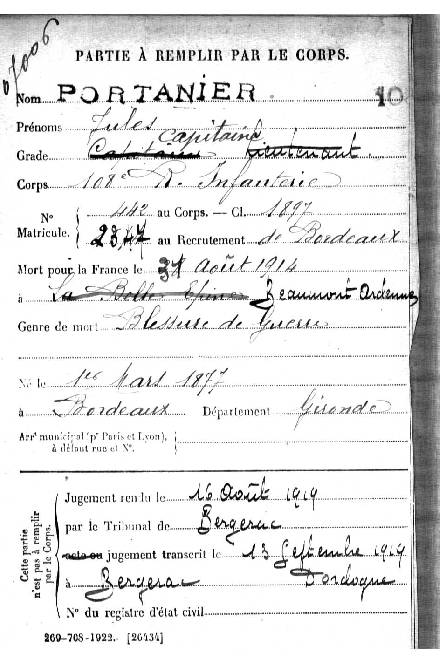 07006
PARTIE À REMPLIR PAR LE CORPS.
Nom PORTANIER 10
Prénoms Jules
Capitaine
Grade Capitaine Lieutenant.
Corps 108e R. Infanterie
N° 442 au Corps. — Cl. 1897
Matricule. 2347 au Recrutement de Bordeaux
Mort pour la France le 31 Août 1914
à La Belle Epine Beaumont Ardennes
Genre de mort Blessure de Guerre
Né le 1er Mars 1877
à Bordeaux Département Gironde
Arrt municipal (pr Paris et Lyon),
à défaut rue et N°.
Cette partie
n'est pas à remplir
par le Corps.
Jugement rendu le 16 Août 1919
par le Tribunal de Bergerac
acte ou jugement transcrit le 13 Septembre 1919
à Bergerac Dordogne
N° du registre d'état civil
269-708-1922. [26434]